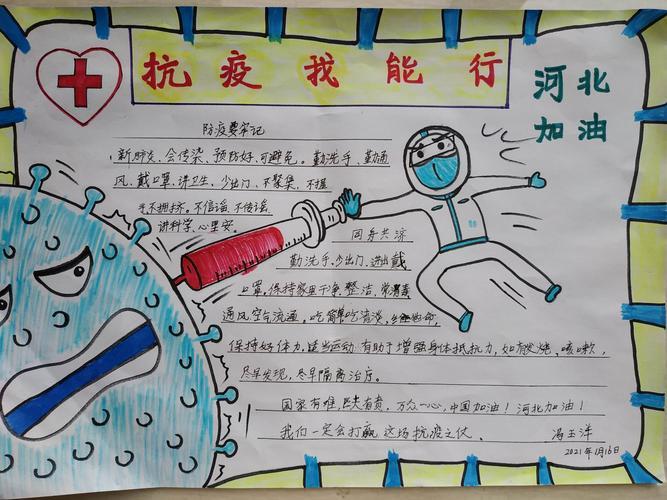 抗疫我能行
河北
加油
防疫要牢记
新肺炎、会传染、预防好、可避免。勤洗手、勤通
风、戴口罩、讲卫生、少出门、不聚集、不握
手不拥挤、不信谣、不传谣、
讲科学、心里安。
同舟共济
勤洗手、少出门、进出戴
口罩，保持家里干净整洁，常消毒
通风空气流通，吃简单吃清淡，
保持好体力，适当运动有助于增强身体抵抗力，如发烧、咳嗽，
尽早发现，尽早隔离治疗。
国家有难，匹夫有责，万众一心，中国加油！河北加油！
我们一定会打赢这场抗疫之仗。
冯玉洋
2021年1月16日